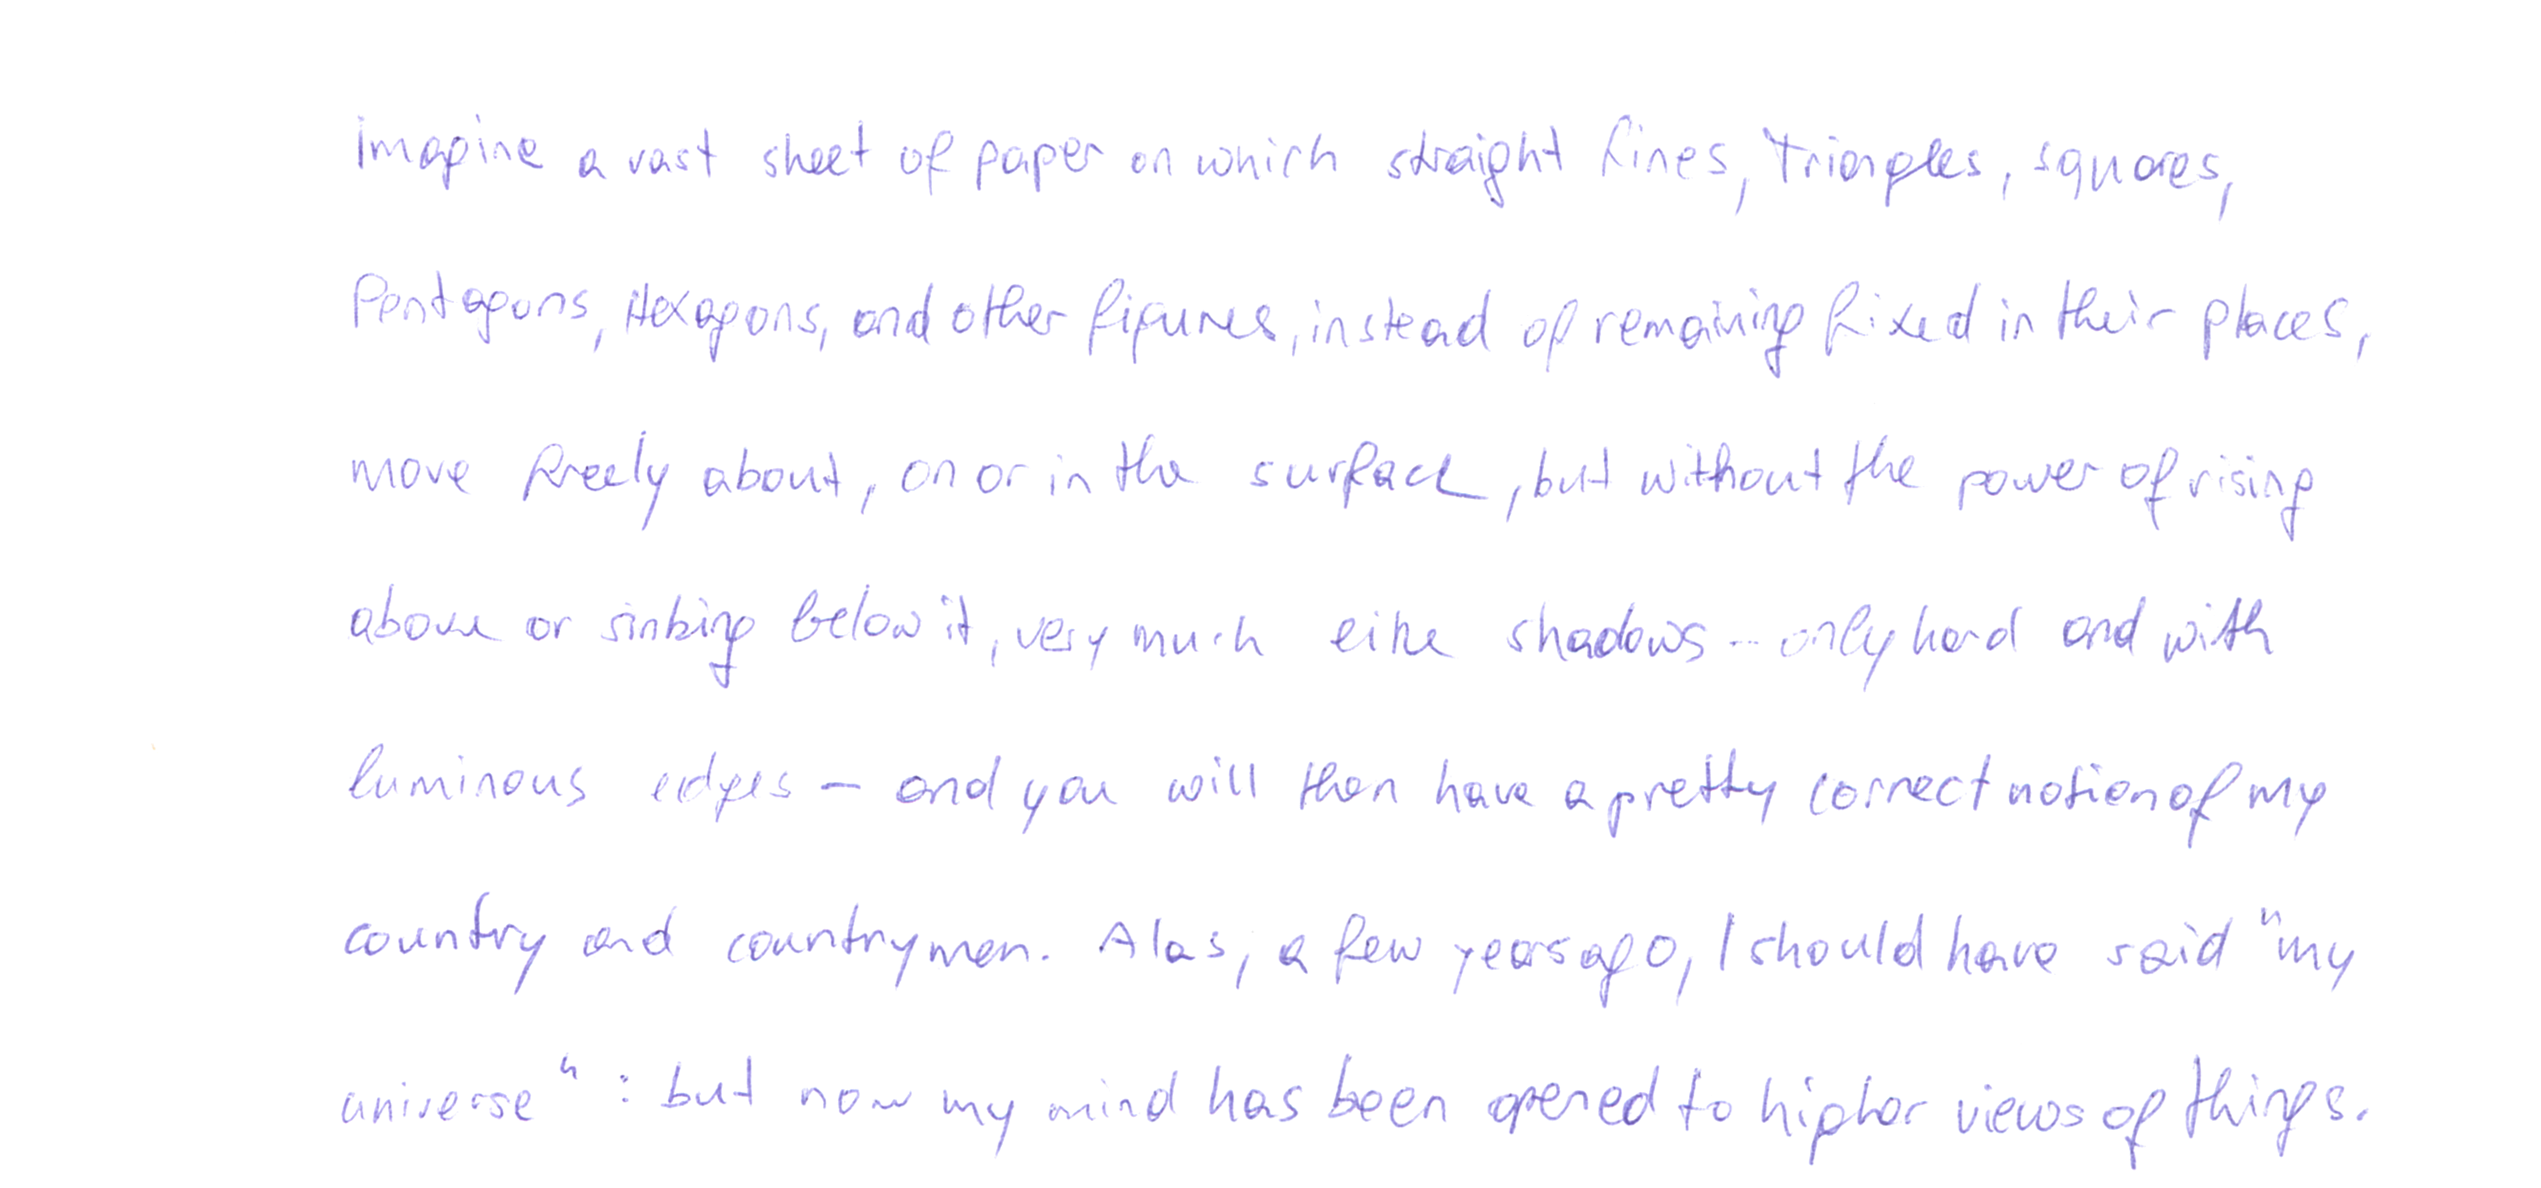 Imagine a vast sheet of paper on which straight lines, Triangles, squares,
Pentagons, Hexagons, and other figures, instead of remaining fixed in their places,
move freely about, on or in the surface, but without the power of rising
above or sinking below it, very much like shadows - only hard and with
luminous edges - and you will then have a pretty correct notion of my
country and countrymen. Alas, a few years ago, I should have said "my
universe": but now my mind has been opened to higher views of things.